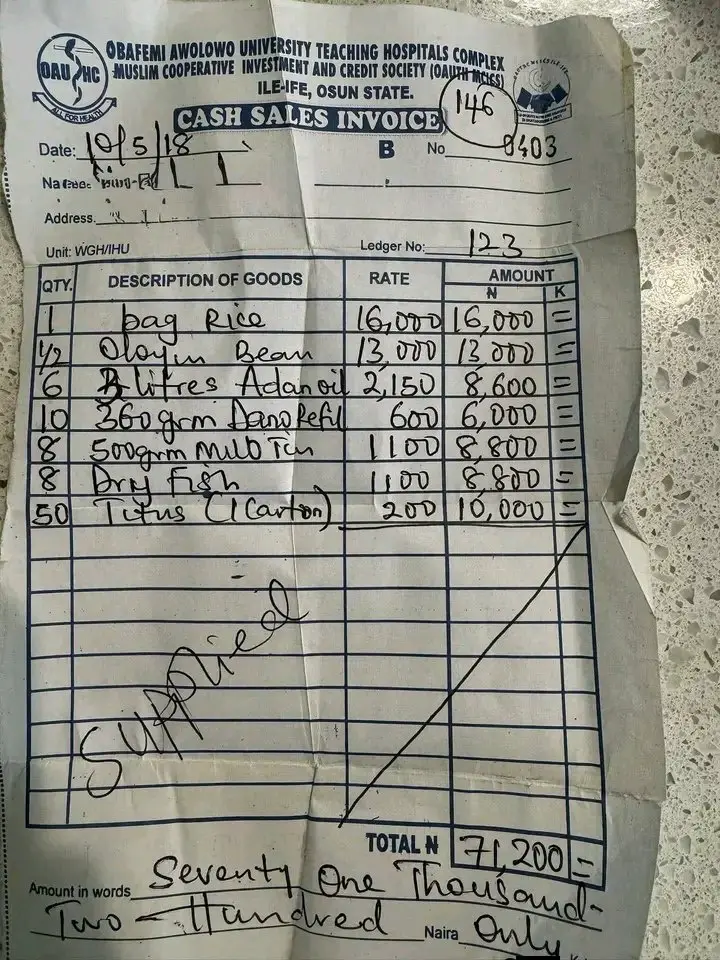 OAU HC
ALL FOR HEALTH
OBAFEMI AWOLOWO UNIVERSITY TEACHING HOSPITALS COMPLEX
MUSLIM COOPERATIVE INVESTMENT AND CREDIT SOCIETY (OAUTH MCICS)
ILE-IFE, OSUN STATE.
CASH SALES INVOICE 146
Date: 10/5/18 B No 0403
Address.
Unit: WGH/IHU Ledger No: 123
QTY. DESCRIPTION OF GOODS RATE AMOUNT
N K
1 bag Rice 16,000 16,000 =
1/2 Oloyin Bean 13,000 13,000 =
6 litres Adan oil 2,150 8,600 =
10 360grm Dano Refil 600 6,000 =
8 500grm Tin 1100 8,800 =
8 Dry fish 1100 8,800 =
50 Titus (1 Carton) 200 10,000 =
Supplied
TOTAL N 71,200 =
Amount in words Seventy One Thousand-
Two - Hundred Naira Only